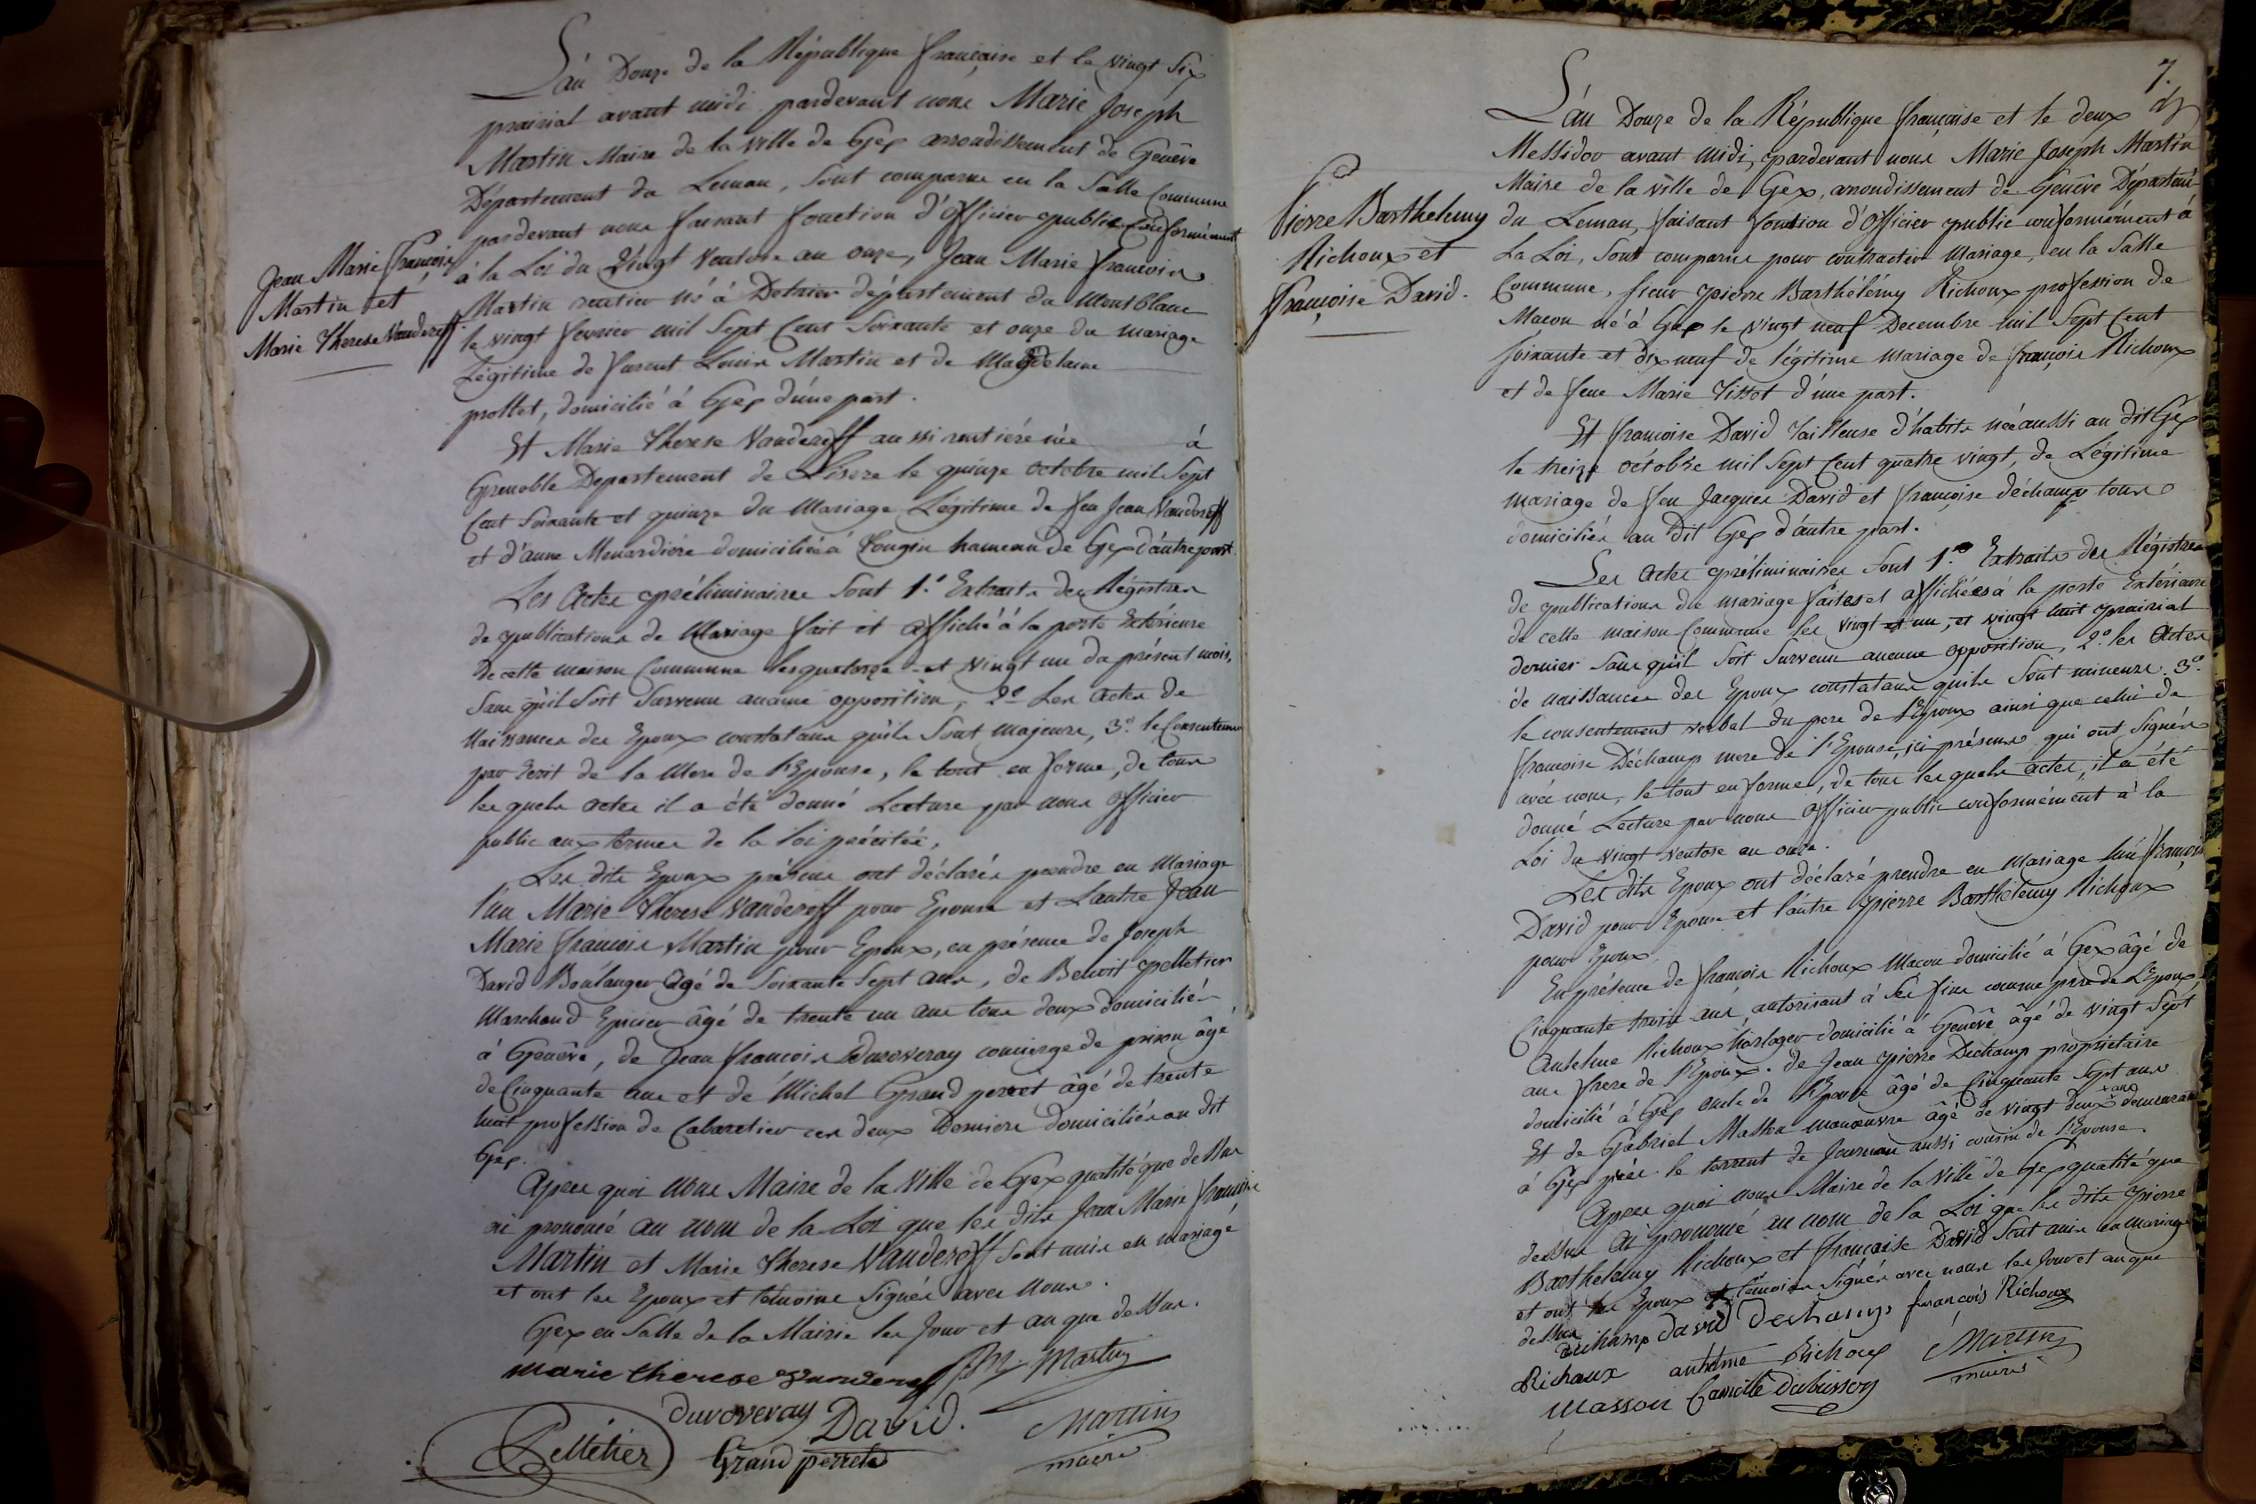 Jean Marie françois
Martin et
Marie Therese Vandereff.
L'an Douze de la République française et le vingt Six
prairial avant midi pardevant nous Marie Joseph
Martin Maire de la ville de Gex arrondissement de Genêve
Département du Leman, Sont comparus en la Salle Commune
pardevant nous faisant fonction d'officier public conformément
à la Loi du Vingt Ventose an onze, Jean Marie françois
Martin rentier né à Département du Montblanc
le vingt fevrier mil Sept Cent Soixante et onze du mariage
Légitime de Louis Martin et de Magdelaine
prollet, domicilié à Gex d'une part.
Et Marie Therese Vandereff aussi rentiére née à
Grenoble Departement de L'isere le quinze octobre mil Sept
Cent Soixante et quinze du Mariage Légitime de feu Jean Vandereff
et d'anne Menardiére domiciliée à Tougin hameau de Gex d'autre part.
Les Actes préliminaires Sont 1.° Extraits des Régistres
de publications de Mariage fait et affiché à la porte Extérieure
de cette maison Commune les quatorze et vingt un du présent mois,
Sans qu'il Soit Survenu aucune opposition, 2.° Les Actes de
Naissances des Epoux constatans qu'ils Sont majeurs, 3.° le Consentement
par Ecrit de la Mere de l'Epouse, le tout en forme, de tous
les quels actes il a été donné Lecture par nous officier
public aux termes de la Loi précitée,
Les dits Epoux présens ont déclarés prendre en Mariage
l'un Marie Therese Vandereff pour Epouse et L'autre Jean
Marie françois Martin pour Epoux, en présence de Joseph
David Boulanger agé de Soixante Sept ans, de Benoit pelletier
Marchand Epicier âgé de trente un ans tous deux domiciliés
à Genêve, de Jean françois Duroveray concierge de prison âgé
de Cinquante ans et de Michel Grand perret âgé de trente
huit profession de Cabaretier ces deux Derniers domiciliés au dit
Gex.
Apres quoi nous Maire de la Ville de Gex qualité que dessus
ai prononcé au nom de la Loi que les dits Jean Marie françois
Martin et Marie Therese Vandereff Sont unis en mariage
et ont les Epoux et témoins Signés avec Nous.
Gex en Salle de la Mairie les Jour et an que dessus.
marie therese Vandereff Martin
duroveray David. Martin
Pelletier Grand perret maire
7.
Pierre Barthelemy
Richoux et
françoise David.
L'an Douze de la République française et le deux
Messidor avant midi, pardevant nous Marie Joseph Martin
Maire de la ville de Gex, arrondissement de Genêve Départem.t
du Leman, faisant fonction d'officier public conformément à
La Loi, Sont comparus pour contracter Mariage, en la Salle
Commune, sieur pierre Barthélémy Richoux profession de
Macon né à Gex le Vingt neuf Decembre mil Sept Cent
Soixante et dix neuf de légitime mariage de françois Richoux
et de feue Marie Tissot d'une part.
Et françoise David Tailleuse d'habits née aussi au dit Gex
le treize octobre mil Sept Cent quatre vingt, de Légitime
mariage de feu Jacques David et françoise déchamp tous
domiciliés au dit Gex d'autre part.
Les Actes préliminaires Sont 1.° Extraits des Régistres
de publications de mariage faites et affichées à la porte Extérieure
de cette maison Commune les vingt et un, et vingt huit prairial
dernier Sans qu'il Soit Survenu aucune opposition, 2.° les Actes
de naissances des Epoux constatans qu'ils Sont mineurs. 3.°
le consentement verbal du pere de l'Epoux ainsi que celui de
françoise Déchamp mere de l'Epouse, ici présens qui ont Signés
avec nous, le tout en forme, de tous les quels actes, il a été
donné Lecture par nous officier public conformément à la
Loi du vingt Ventose an onze.
Les dits Epoux ont déclaré prendre en Mariage l'un françoise
David pour Epouse et l'autre pierre Barthélemy Richoux
pour Epoux.
En présence de françois Richoux Macon domicilié à Gex âgé de
Cinquante trois ans, autorisant à Ses fins comme pere de L'Epoux,
Antelme Richoux horloger domicilié à Genêve âgé de vingt Sept
ans frere de l'Epoux. de Jean pierre Dechamp propriétaire
domicilié à Gex oncle de l'Epouse âgé de Cinquante Sept ans
Et de Gabriel Maska manœuvre âgé de vingt deux ans demeurant
à Gex prés le torrent de Journan aussi cousin de l'Epouse.
Apres quoi nous Maire de la Ville de Gex qualité que
dessus Ai prononcé au nom de la Loi que les dits pierre
Barthelemy Richoux et françoise David Sont unis en mariage
et ont les Epoux et témoins Signés avec nous les Jour et an que
dessus
dechamp david dechamp françois Richoux
Richoux antelme Richoux Martin
masson Camille dubusson maire